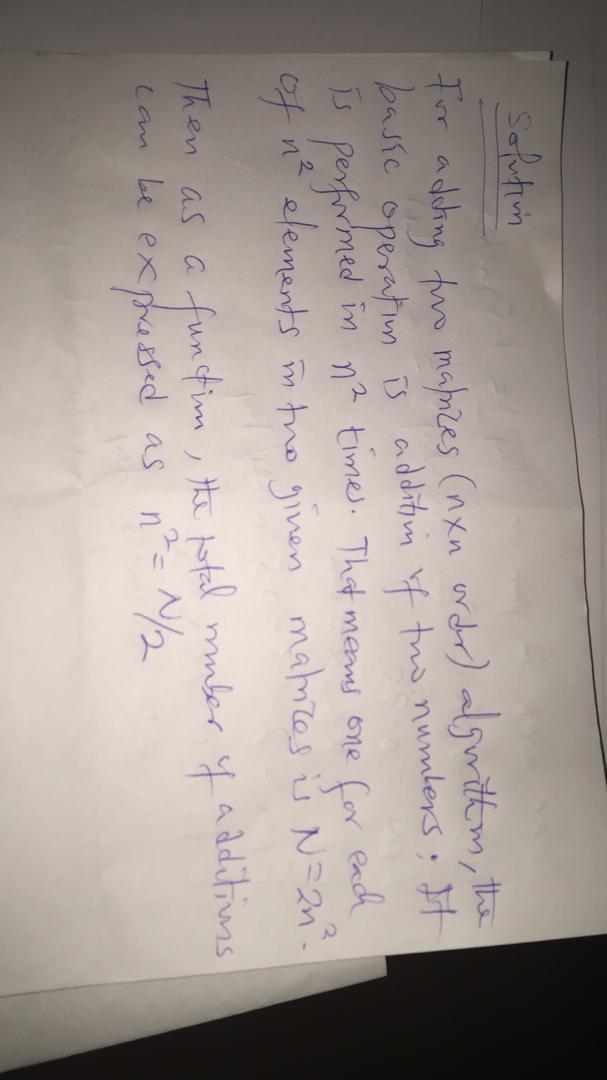 Solution
For adding two matrices (n×n order) algorithm, the
basic operation is addition of two numbers. It
is performed in n² times. That means one for each
of n² elements in two given matrices is N=2n².
Then as a function, the total number of additions
can be expressed as n² = N/2